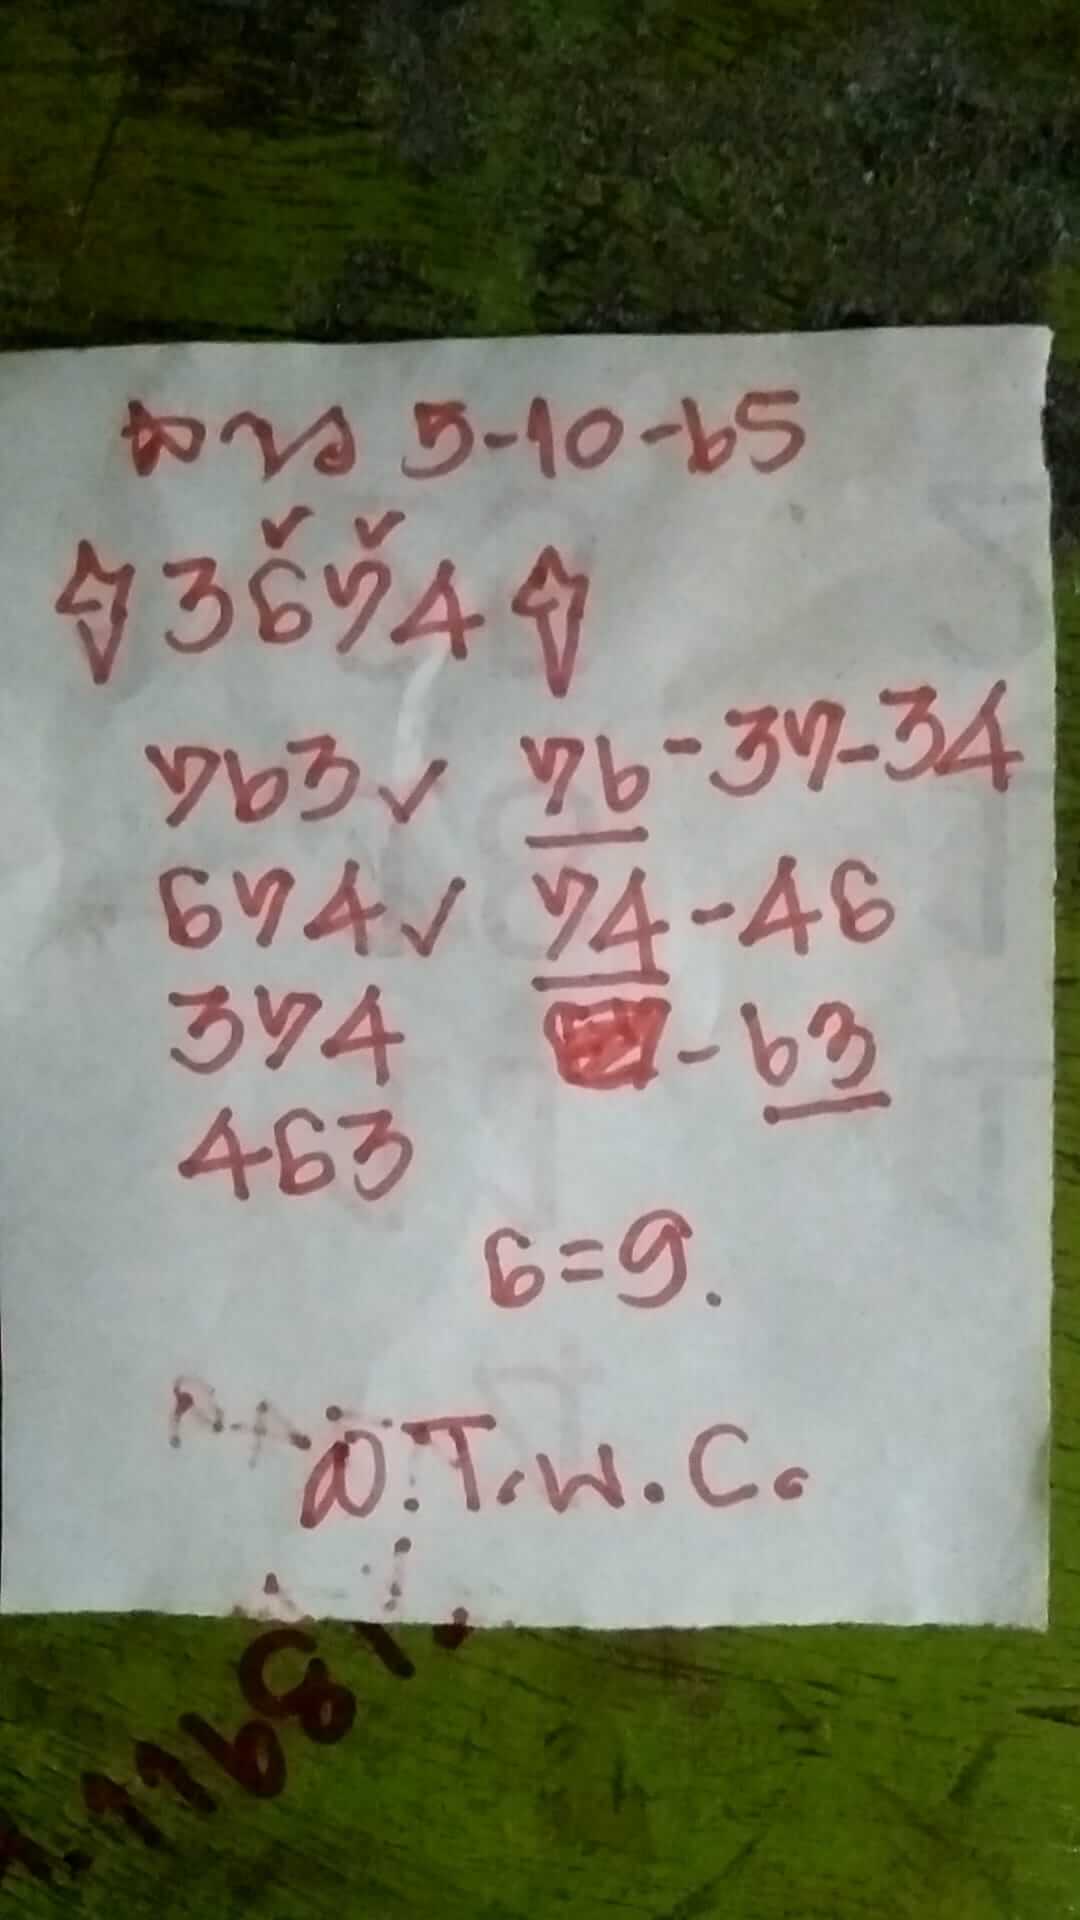 ลาว 5-10-65
3674
763 76-37-34
674 74-46
374 -63
463
6=9.
อ.T.W.C.